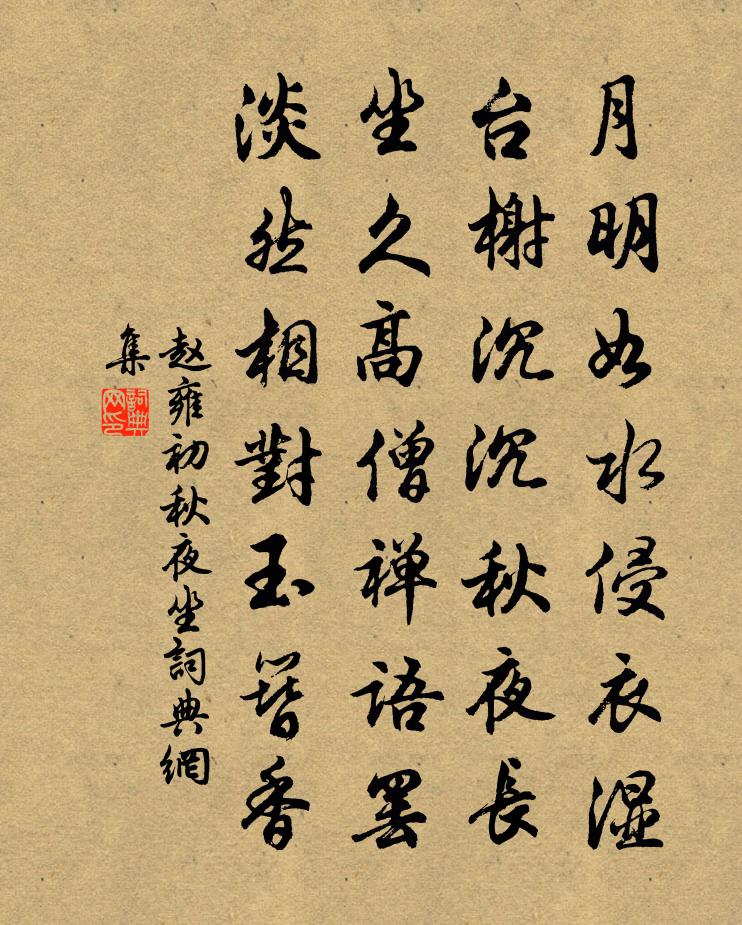 月明如水侵衣湿
台榭沉沉秋夜長
坐久高僧禅語罢
淡然相對玉簪香
赵雍初秋夜坐詞典網
集
詞典
网印